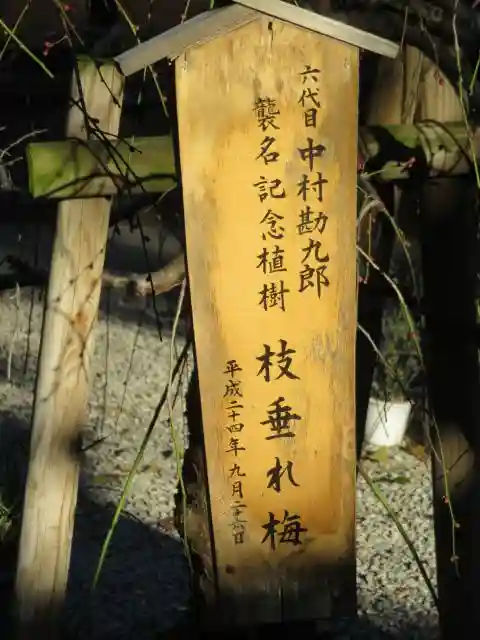 六代目 中村勘九郎
襲名記念植樹
枝垂れ梅
平成二十四年九月二十六日